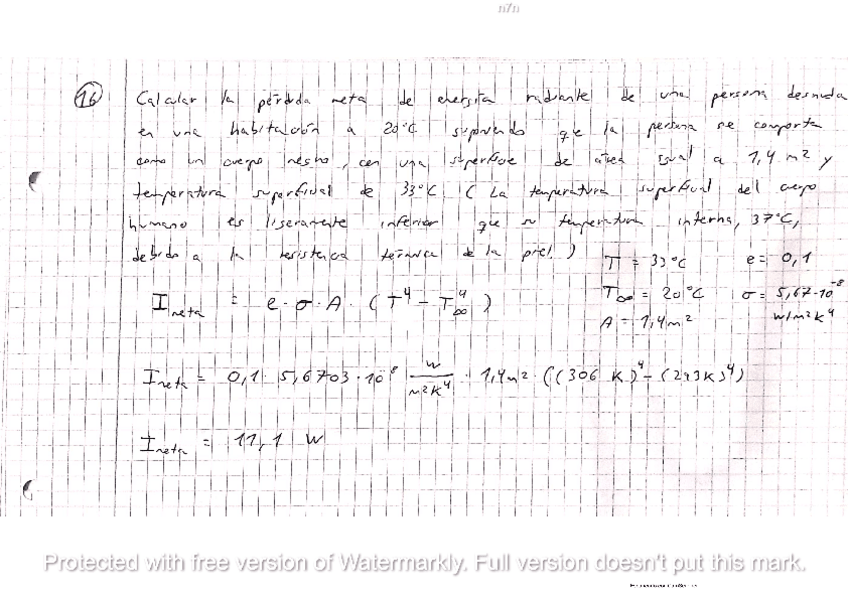 16 Calcular la pérdida neta de energía radiante de una persona desnuda
en una habitación a 20°C suponiendo que la persona se comporta
como un cuerpo negro, con una superficie de área igual a 1,4 m² y
temperatura superficial de 33°C. (La temperatura superficial del cuerpo
humano es ligeramente inferior que su temperatura interna, 37°C,
debido a la resistencia térmica de la piel.)
T = 33°C e = 0,1
T∞ = 20°C σ = 5,67·10⁻⁸
A = 1,4 m² W/m²K⁴
I neta = e · σ · A · (T⁴ - T∞⁴)
I neta = 0,1 · 5,6703 · 10⁻⁸ W/m²K⁴ · 1,4 m² · ((306 K)⁴ - (293 K)⁴)
I neta = 11,1 W
Protected with free version of Watermarkly. Full version doesn't put this mark.